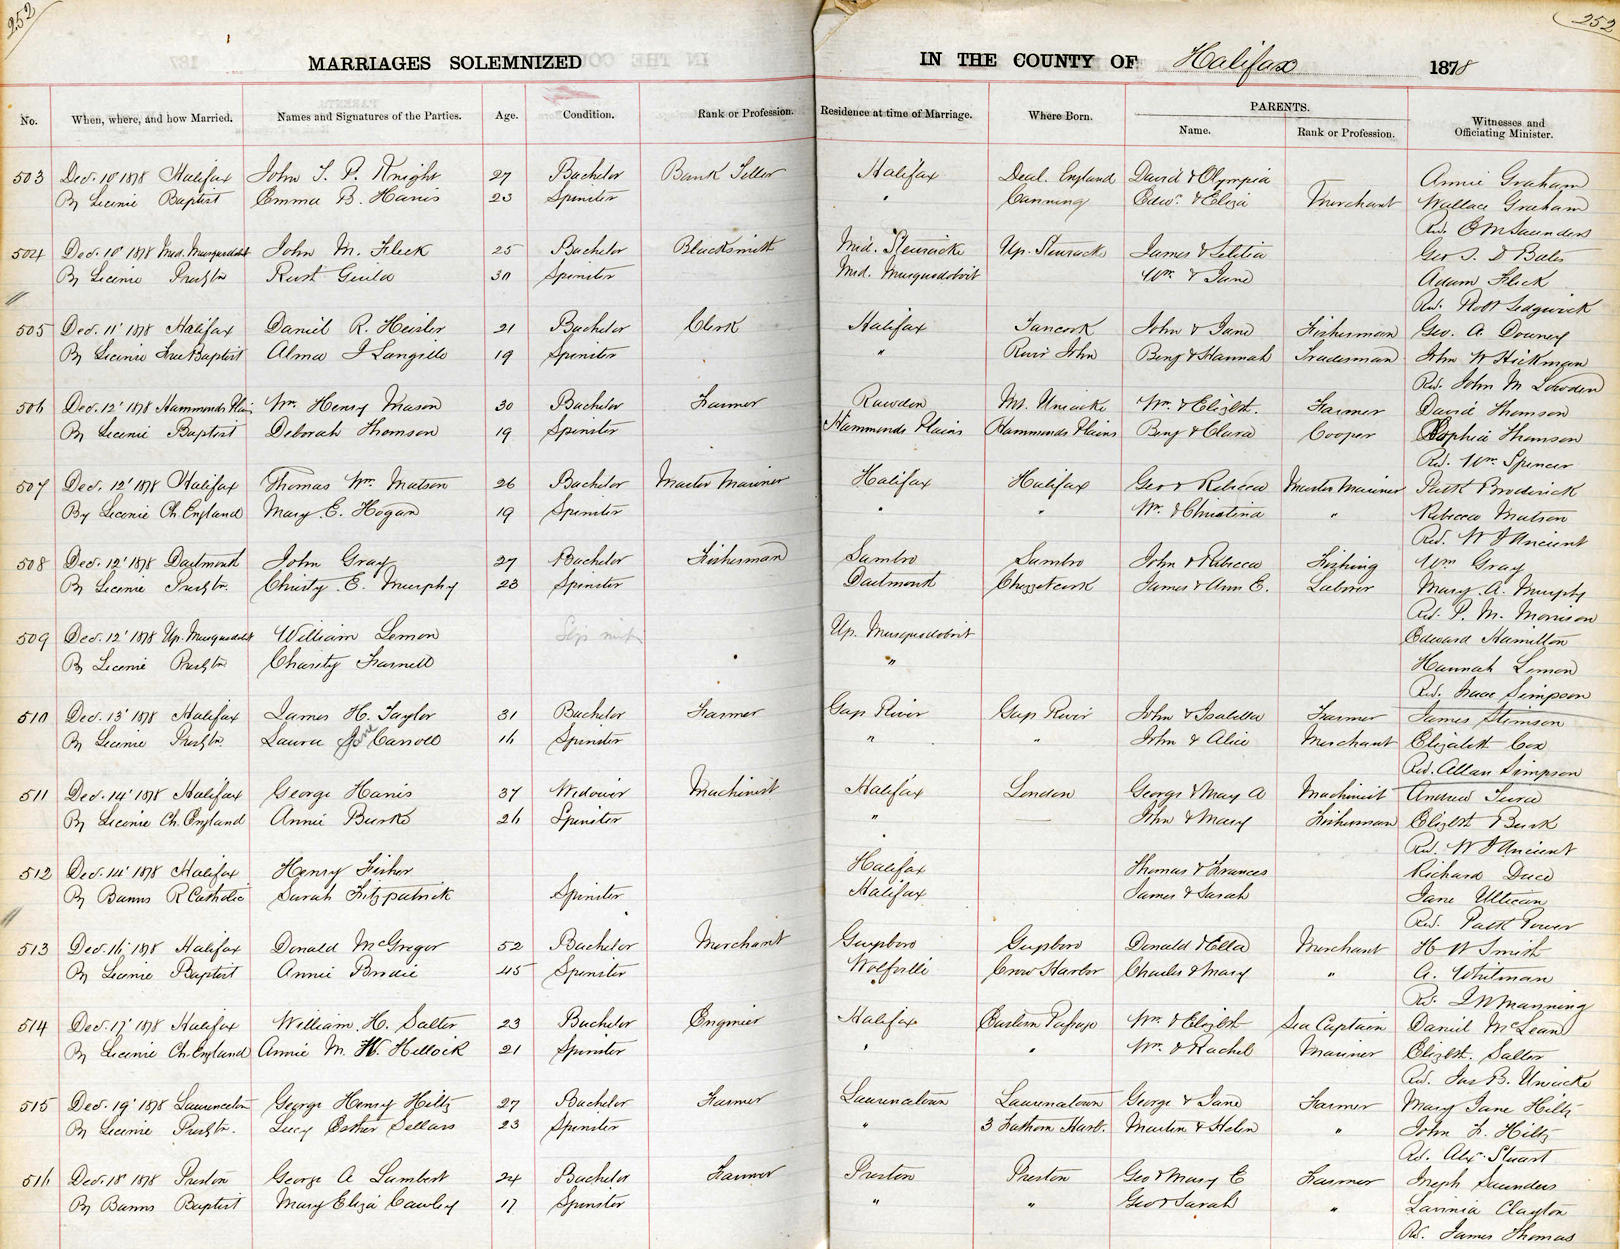 252
252
MARRIAGES SOLEMNIZED IN THE COUNTY OF Halifax 1878
PARENTS.
No. When, where, and how Married. Names and Signatures of the Parties. Age. Condition. Rank or Profession. Residence at time of Marriage. Where Born. Name. Rank or Profession. Witnesses and Officiating Minister.
503 Dec. 10' 1878 Halifax John P. Knight 27 Bachelor Bank Teller Halifax Deal. England David & Olympia Annie Graham
By Licence Baptist Emma B. Harris 23 Spinster " Canning Edwd. & Eliza Merchant Wallace Graham
Rev. Saunders
504 Dec. 10' 1878 Mid. Musquodobit John M. Fleck 25 Bachelor Blacksmith Mid. Stewiacke Up. Stewiacke James & Letitia Geo D Bates
By Licence Presbtn Guild 30 Spinster Mid. Musquodoboit Wm & Jane Adam Fleck
Rev. Robt Sedgwick
505 Dec. 11' 1878 Halifax Daniel R. Heisler 21 Bachelor Clerk Halifax Tancook John & Jane Fisherman Geo. A Downey
By Licence Free Baptist Alma J Langille 19 Spinster " River John Benj & Hannah Tradesman John W Hickman
Rev. John M Lowden
506 Dec. 12' 1878 Hammonds Plain Wm. Henry Mason 30 Bachelor Farmer Rawdon Mt. Uniacke Wm. & Elizbt. Farmer David Thomson
By Licence Baptist Deborah Thomson 19 Spinster Hammonds Plains Hammonds Plains Benj & Clara Cooper Sophia Thomson
Rev. Wm. Spencer
507 Dec. 12' 1878 Halifax Thomas Wm. Matson 26 Bachelor Master Mariner Halifax Halifax Geo & Rebecca Master Mariner Patk Broderick
By Licence Ch. England Mary E. Hogan 19 Spinster " " Wm. & Christina " Rebecca Matson
Rev. W J Ancient
508 Dec. 12' 1878 Dartmouth John Gray 27 Bachelor Fisherman Sambro Sambro John & Rebecca Fishing Wm Gray
By Licence Presbtn. Christy E. Murphy 23 Spinster Dartmouth Chezzetcook James & Ann E. Labror Mary A. Murphy
Rev. P. M. Morrison
509 Dec. 12' 1878 Up. Musquodobt William Lemon Up. Musquodoboit Edward Hamilton
By Licence Presbtn Charity Farnell " Hannah Lemon
Rev. Isaac Simpson
510 Dec. 13' 1878 Halifax James H. Taylor 31 Bachelor Farmer Gays River Gays River John & Isabella Farmer James Stimson
By Licence Presbtn. Laura Jane Carroll 16 Spinster " " John & Alice Merchant Elizabeth Cox
Rev. Allan Simpson
511 Dec. 14' 1878 Halifax George Harris 37 Widower Machinist Halifax London George & Mary A Machinist Andrew
By Licence Ch. England Annie Burke 26 Spinster " — John & Mary Fisherman Elizbth Burk
Rev. W J Ancient
512 Dec. 14' 1878 Halifax Henry Fisher Halifax Thomas & Frances Richard
By Banns R Catholic Sarah Fitzpatrick Spinster Halifax James & Sarah Jane
Rev. Patk Power
513 Dec. 16' 1878 Halifax Donald McGregor 52 Bachelor Merchant Guysboro Guysboro Donald & Ella Merchant H W Smith
By Licence Baptist Annie Brodie 45 Spinster Wolfville Crow Harbor Charles & Mary " A. Whitman
Rev. J W Manning
514 Dec. 17' 1878 Halifax William H. Salter 23 Bachelor Engineer Halifax Eastern Passage Wm. & Elizbth Sea Captain Daniel McLean
By Licence Ch. England Annie M. H. Hellock 21 Spinster " " Wm. & Rachel Mariner Elizbt. Salter
Rev. Jas B. Uniacke
515 Dec. 19' 1878 Laurencetown George Henry Hiltz 27 Bachelor Farmer Laurencetown Laurencetown George & Jane Farmer Mary Jane Hiltz
By Licence Presbtn. Lucy Esther Sellars 23 Spinster " 3 Fathom Harb. Martin & Helen " John F. Hiltz
Rev. Alex. Stuart
516 Dec. 18' 1878 Preston George A Lambert 24 Bachelor Farmer Preston Preston Geo & Mary E Farmer Joseph Saunders
By Banns Baptist Mary Eliza Cawley 17 Spinster " " Geo & Sarah " Lavinia Clayton
Rev. James Thomas